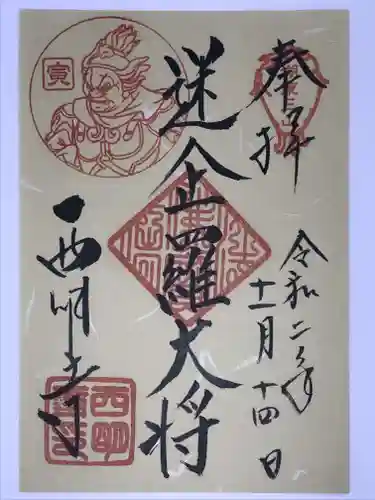 奉拝
令和二年
十一月十四日
迷企羅大将
寅
西明寺